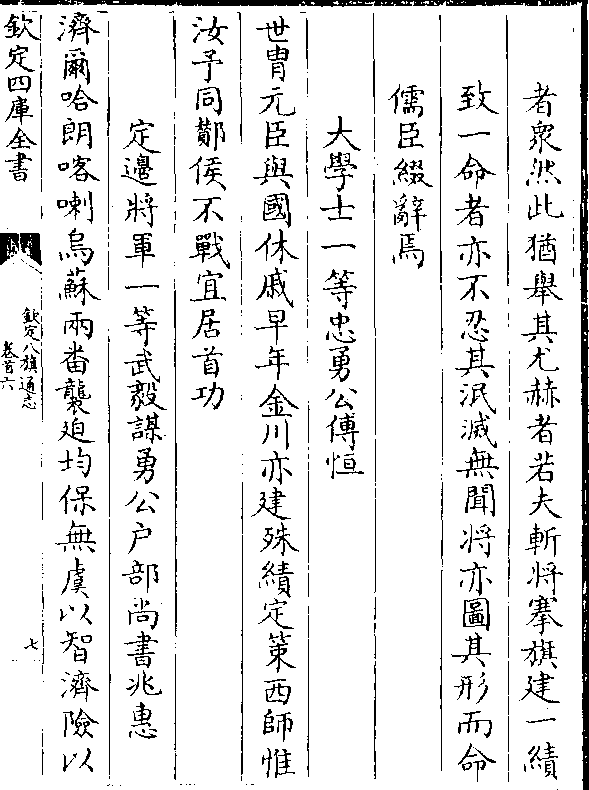 者衆然此猶舉其尤赫者若夫斬将搴旗建一績
致一命者亦不忍其泯滅無聞将亦圖其形而命
儒臣綴辭焉
大學士一等忠勇公傅恒
世胄元臣與國休戚早年金川亦建殊績定䇿西師惟
汝予同酇侯不戰宜居首功
定邊将軍一等武毅謀勇公户部尚書兆惠
濟爾哈朗喀喇烏蘇兩番襲廹均保無虞以智濟險以
欽定四庫全書
欽定八旗通志
卷首六
七